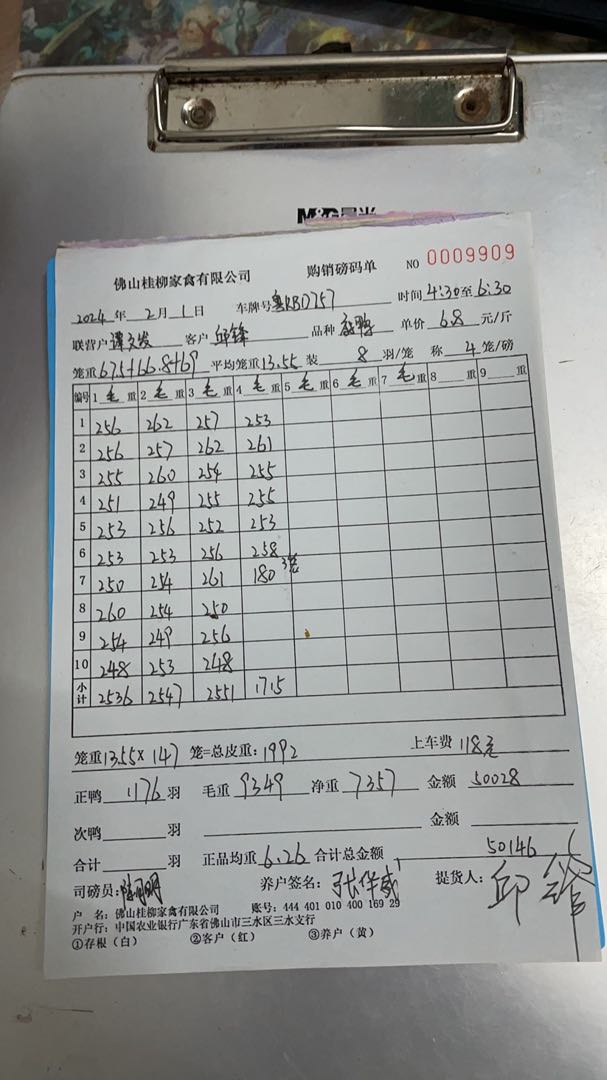 M&G晨光
佛山桂柳家禽有限公司 购销磅码单 NO 0009909
2024年2月1日 车牌号粤RBD757 时间4:30至6:30
联营户谭文发 客户邱锋 品种 单价6.8元/斤
笼重67.5+66.8+69 平均笼重13.55 装8羽/笼 称4笼/磅
编号 1毛重 2毛重 3毛重 4毛重 5毛重 6毛重 7毛重 8 重 9 重
1 256 262 257 253
2 256 257 262 261
3 255 260 254 255
4 251 249 255 255
5 253 256 252 253
6 253 253 256 258
7 250 254 261 180 3笼
8 260 254 250
9 254 249 256
10 248 253 248
小计 2536 2547 2551 1715
笼重13.55×147笼=总皮重:1992 上车费118元
正鸭1176羽 毛重9349 净重7357 金额50028
次鸭 羽 金额
合计 羽 正品均重6.26 合计总金额50146
司磅员: 养户签名:张华威 提货人:邱锋
户 名:佛山桂柳家禽有限公司 账号:444 401 010 400 169 29
开户行:中国农业银行广东省佛山市三水区三水支行
①存根(白) ②客户(红) ③养户(黄)